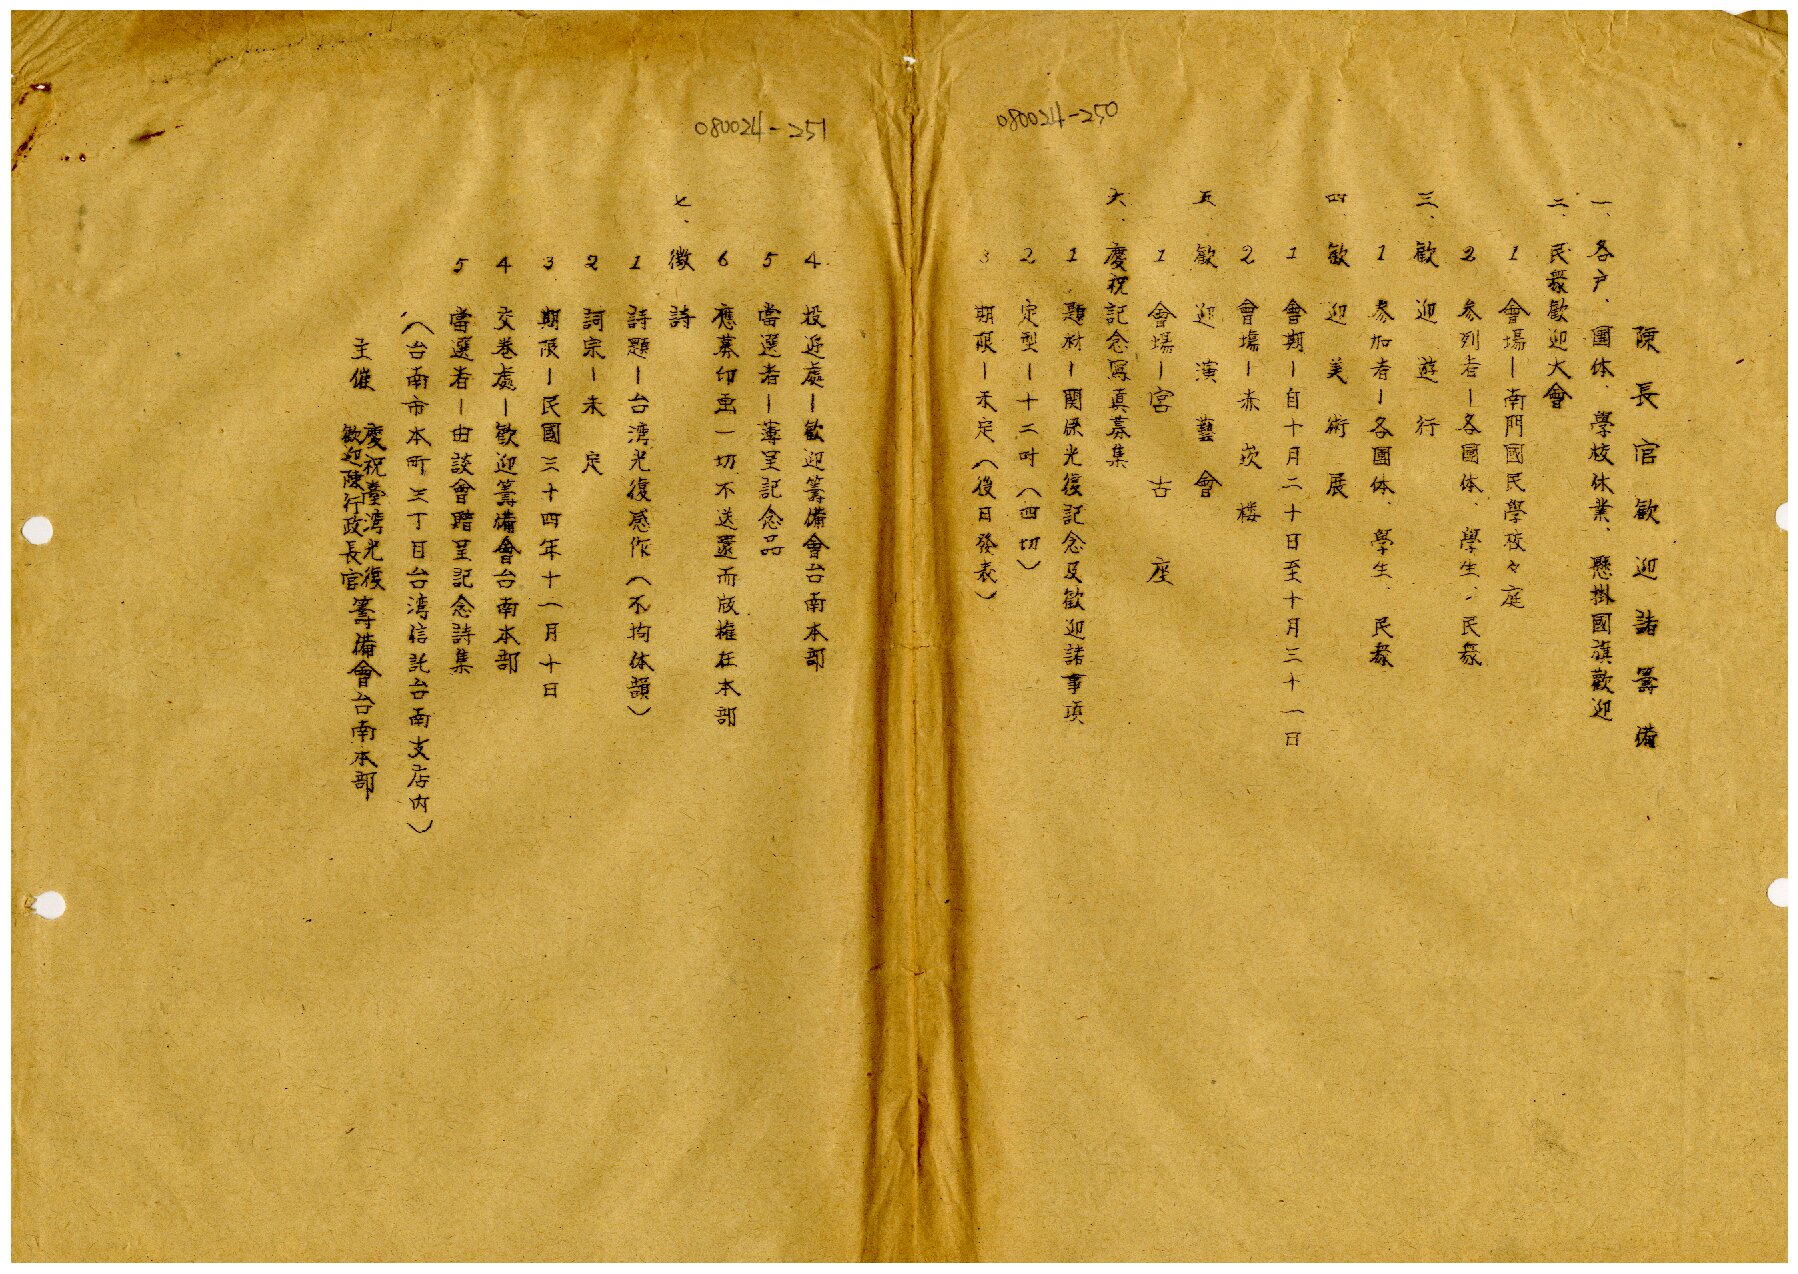 080024-250
陳長官歓迎諸籌備
一、各戶、團体、學校休業、懸掛國旗歡迎
二、民衆歓迎大會
1 會場ー南門國民學校々庭
2 參列者ー各團体、學生、民衆
三、歓迎遊行
1 參加者ー各團体、學生、民衆
四、歓迎美術展
1 會期ー自十月二十日至十月三十一日
2 會場ー赤崁楼
五、歓迎演藝會
1 會場ー宮古座
六、慶祝記念寫真募集
1 題材ー関係光復記念及歓迎諸事項
2 定型ー十二吋(四切)
3 期限ー未定(後日發表)
080024-251
4 投逓處ー歓迎籌備會台南本部
5 當選者ー薄呈記念品
6 應募印畫一切不送還而版権在本部
七、徴詩
1 詩題ー台湾光復感作(不拘体韻)
2 詞宗ー未定
3 期限ー民國三十四年十一月十日
4 交巻處ー歓迎籌備會台南本部
5 當選者ー由談會贈呈記念詩集
(台南市本町三丁目台湾信託台南支店内)
主催 慶祝臺湾光復
歓迎陳行政長官 籌備會台南本部